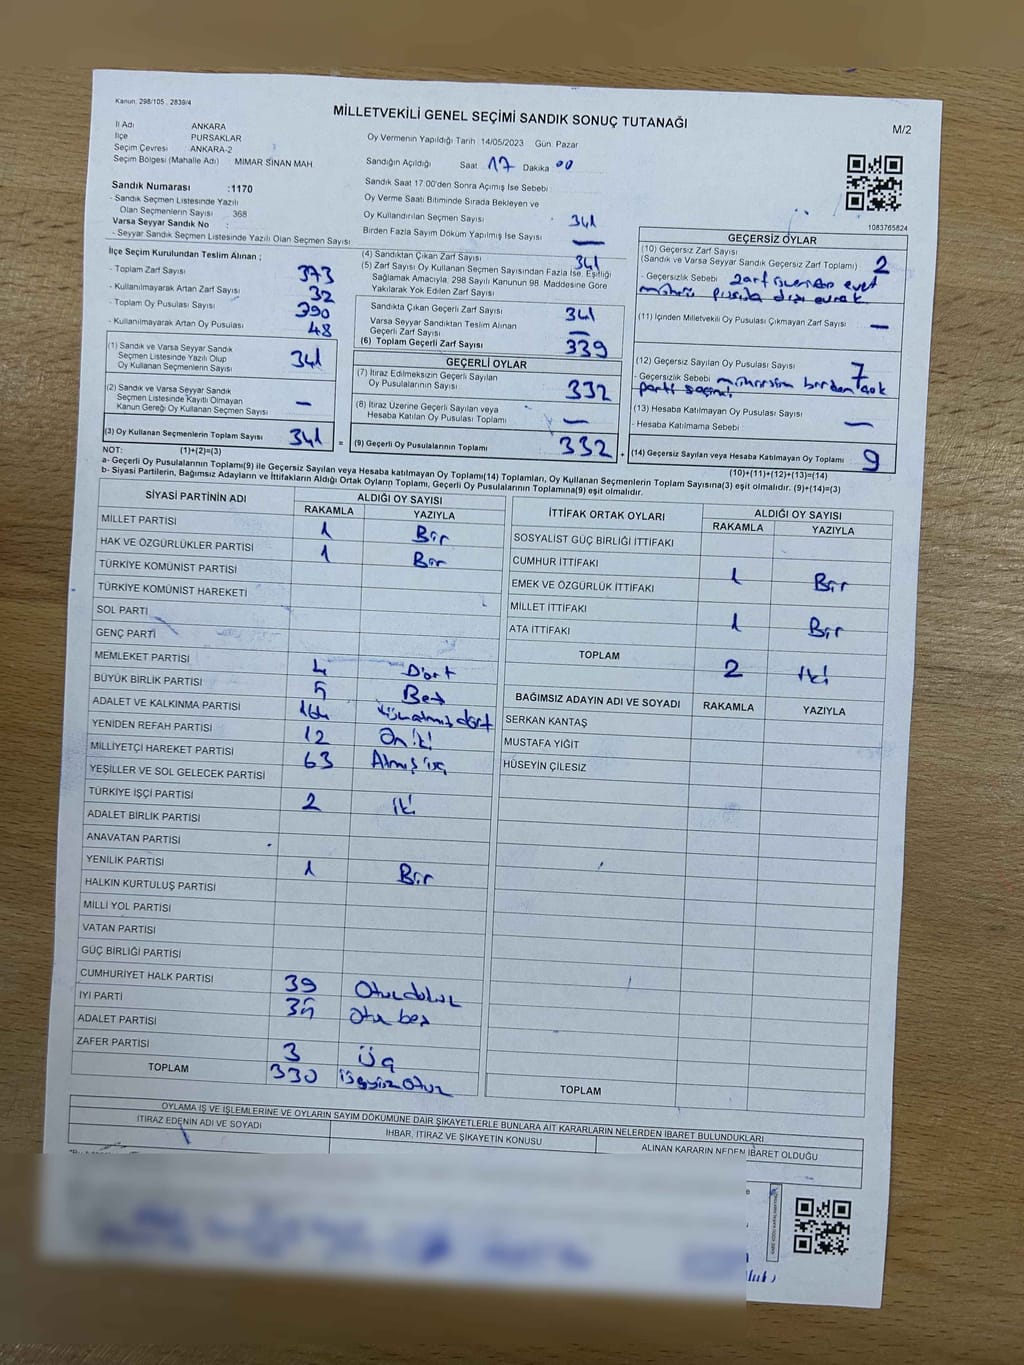 Kanun, 298/105 , 2839/4
MİLLETVEKİLİ GENEL SEÇİMİ SANDIK SONUÇ TUTANAĞI
M/2
İl Adı ANKARA
İlçe PURSAKLAR
Seçim Çevresi ANKARA-2
Seçim Bölgesi (Mahalle Adı) MİMAR SİNAN MAH
Oy Vermenin Yapıldığı Tarih 14/05/2023 Gün. Pazar
Sandığın Açıldığı Saat 17 Dakika 00
Sandık Saat 17:00'den Sonra Açımış İse Sebebi
Oy Verme Saati Bitiminde Sırada Bekleyen ve
Oy Kullandırılan Seçmen Sayısı 341
Birden Fazla Sayım Döküm Yapılmış İse Sayısı —
1083765824
Sandık Numarası :1170
- Sandık Seçmen Listesinde Yazılı
Olan Seçmenlerin Sayısı 368
Varsa Seyyar Sandık No :
- Seyyar Sandık Seçmen Listesinde Yazılı Olan Seçmen Sayısı
İlçe Seçim Kurulundan Teslim Alınan ;
- Toplam Zarf Sayısı 373
- Kullanılmayarak Artan Zarf Sayısı 32
- Toplam Oy Pusulası Sayısı 390
- Kullanılmayarak Artan Oy Pusulası 48
(1) Sandık ve Varsa Seyyar Sandık
Seçmen Listesinde Yazılı Olup
Oy Kullanan Seçmenlerin Sayısı 341
(2) Sandık ve Varsa Seyyar Sandık
Seçmen Listesinde Kayıtlı Olmayan
Kanun Gereği Oy Kullanan Seçmen Sayısı —
(3) Oy Kullanan Seçmenlerin Toplam Sayısı 341 =
(4) Sandıktan Çıkan Zarf Sayısı 341
(5) Zarf Sayısı Oy Kullanan Seçmen Sayısından Fazla İse, Eşitliği
Sağlamak Amacıyla, 298 Sayılı Kanunun 98. Maddesine Göre
Yakılarak Yok Edilen Zarf Sayısı
Sandıkta Çıkan Geçerli Zarf Sayısı 341
Varsa Seyyar Sandıktan Teslim Alınan
Geçerli Zarf Sayısı —
(6) Toplam Geçerli Zarf Sayısı 339
GEÇERLİ OYLAR
(7) İtiraz Edilmeksizin Geçerli Sayılan
Oy Pusulalarının Sayısı 332
(8) İtiraz Üzerine Geçerli Sayılan veya
Hesaba Katılan Oy Pusulası Toplamı —
(9) Geçerli Oy Pusulalarının Toplamı 332 +
GEÇERSİZ OYLAR
(10) Geçersiz Zarf Sayısı
(Sandık ve Varsa Seyyar Sandık Geçersiz Zarf Toplamı) 2
- Geçersizlik Sebebi zarf evet
mührü pusula dışı evrak
(11) İçinden Milletvekili Oy Pusulası Çıkmayan Zarf Sayısı —
(12) Geçersiz Sayılan Oy Pusulası Sayısı 7
- Geçersizlik Sebebi birden çok
parti
(13) Hesaba Katılmayan Oy Pusulası Sayısı —
- Hesaba Katılmama Sebebi :
(14) Geçersiz Sayılan veya Hesaba Katılmayan Oy Toplamı 9
NOT: (1)+(2)=(3) (10)+(11)+(12)+(13)=(14)
a- Geçerli Oy Pusulalarının Toplamı(9) ile Geçersiz Sayılan veya Hesaba katılmayan Oy Toplamı(14) Toplamları, Oy Kullanan Seçmenlerin Toplam Sayısına(3) eşit olmalıdır. (9)+(14)=(3)
b- Siyasi Partilerin, Bağımsız Adayların ve İttifakların Aldığı Ortak Oyların Toplamı, Geçerli Oy Pusulalarının Toplamına(9) eşit olmalıdır.
SİYASİ PARTİNİN ADI ALDIĞI OY SAYISI
RAKAMLA YAZIYLA
MİLLET PARTİSİ 1 Bir
HAK VE ÖZGÜRLÜKLER PARTİSİ 1 Bir
TÜRKİYE KOMÜNİST PARTİSİ
TÜRKİYE KOMÜNİST HAREKETİ
SOL PARTİ
GENÇ PARTİ
MEMLEKET PARTİSİ 4 Dört
BÜYÜK BİRLİK PARTİSİ 5 Beş
ADALET VE KALKINMA PARTİSİ 164 Yüzaltmış dört
YENİDEN REFAH PARTİSİ 12 On iki
MİLLİYETÇİ HAREKET PARTİSİ 63 Atmış üç
YEŞİLLER VE SOL GELECEK PARTİSİ
TÜRKİYE İŞÇİ PARTİSİ 2 iki
ADALET BİRLİK PARTİSİ
ANAVATAN PARTİSİ
YENİLİK PARTİSİ 1 Bir
HALKIN KURTULUŞ PARTİSİ
MİLLİ YOL PARTİSİ
VATAN PARTİSİ
GÜÇ BİRLİĞİ PARTİSİ
CUMHURİYET HALK PARTİSİ 39 Otuz dokuz
İYİ PARTİ 35 Otuz beş
ADALET PARTİSİ
ZAFER PARTİSİ 3 üç
TOPLAM 330 üçyüz Otuz
İTTİFAK ORTAK OYLARI ALDIĞI OY SAYISI
RAKAMLA YAZIYLA
SOSYALİST GÜÇ BİRLİĞİ İTTİFAKI
CUMHUR İTTİFAKI 1 Bir
EMEK VE ÖZGÜRLÜK İTTİFAKI
MİLLET İTTİFAKI 1 Bir
ATA İTTİFAKI
TOPLAM 2 iki
BAĞIMSIZ ADAYIN ADI VE SOYADI RAKAMLA YAZIYLA
SERKAN KANTAŞ
MUSTAFA YİĞİT
HÜSEYİN ÇİLESİZ
TOPLAM
OYLAMA İŞ VE İŞLEMLERİNE VE OYLARIN SAYIM DÖKÜMÜNE DAİR ŞİKAYETLERLE BUNLARA AİT KARARLARIN NELERDEN İBARET BULUNDUKLARI
İTİRAZ EDENİN ADI VE SOYADI İHBAR, İTİRAZ VE ŞİKAYETİN KONUSU ALINAN KARARIN NEDEN İBARET OLDUĞU